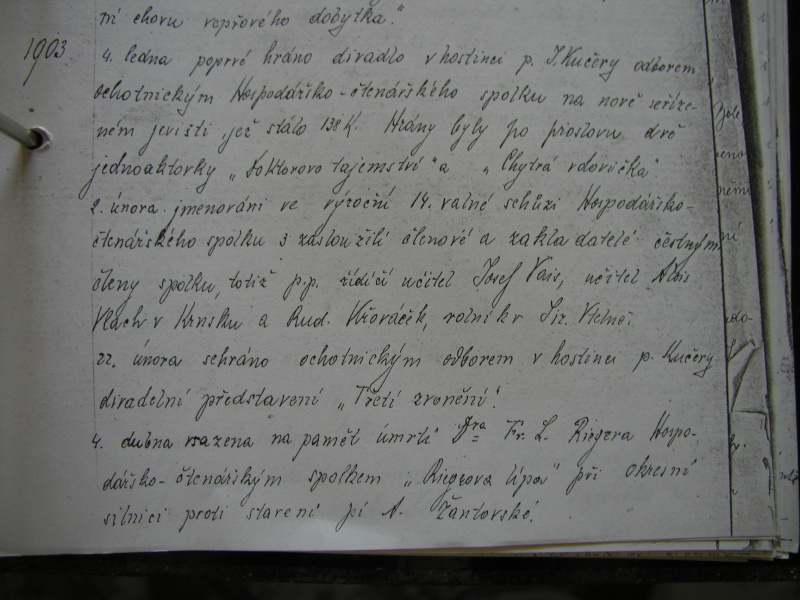 ní chovu vepřového dobytka."
1903
4. ledna poprvé hráno divadlo v hostinci p. J. Kučery odborem
ochotnickým Hospodářsko-čtenářského spolku na nově seříze-
ném jevišti, jež stálo 138 K. Hrány byly po proslovu dvě
jednoaktovky „Doktorovo tajemství" a „Chytrá vdovička".
2. února jmenováni ve výroční 14. valné schůzi Hospodářsko-
čtenářského spolku 3 zasloužilí členové a zakladatelé čestnými
členy spolku, totiž p.p. řídící učitel Josef Vais, učitel Alois
Vlach v Krnsku a Rud. Křováček, rolník v Jiz. Vtelně.
22. února sehráno ochotnickým odborem v hostinci p. Kučery
divadelní představení „Třetí zvonění".
4. dubna vsazena na paměť úmrtí Dra Fr. L. Riegera Hospo-
dářsko-čtenářským spolkem „Riegrova lípa" při okresní
silnici proti stavení pí A. Žantovské.